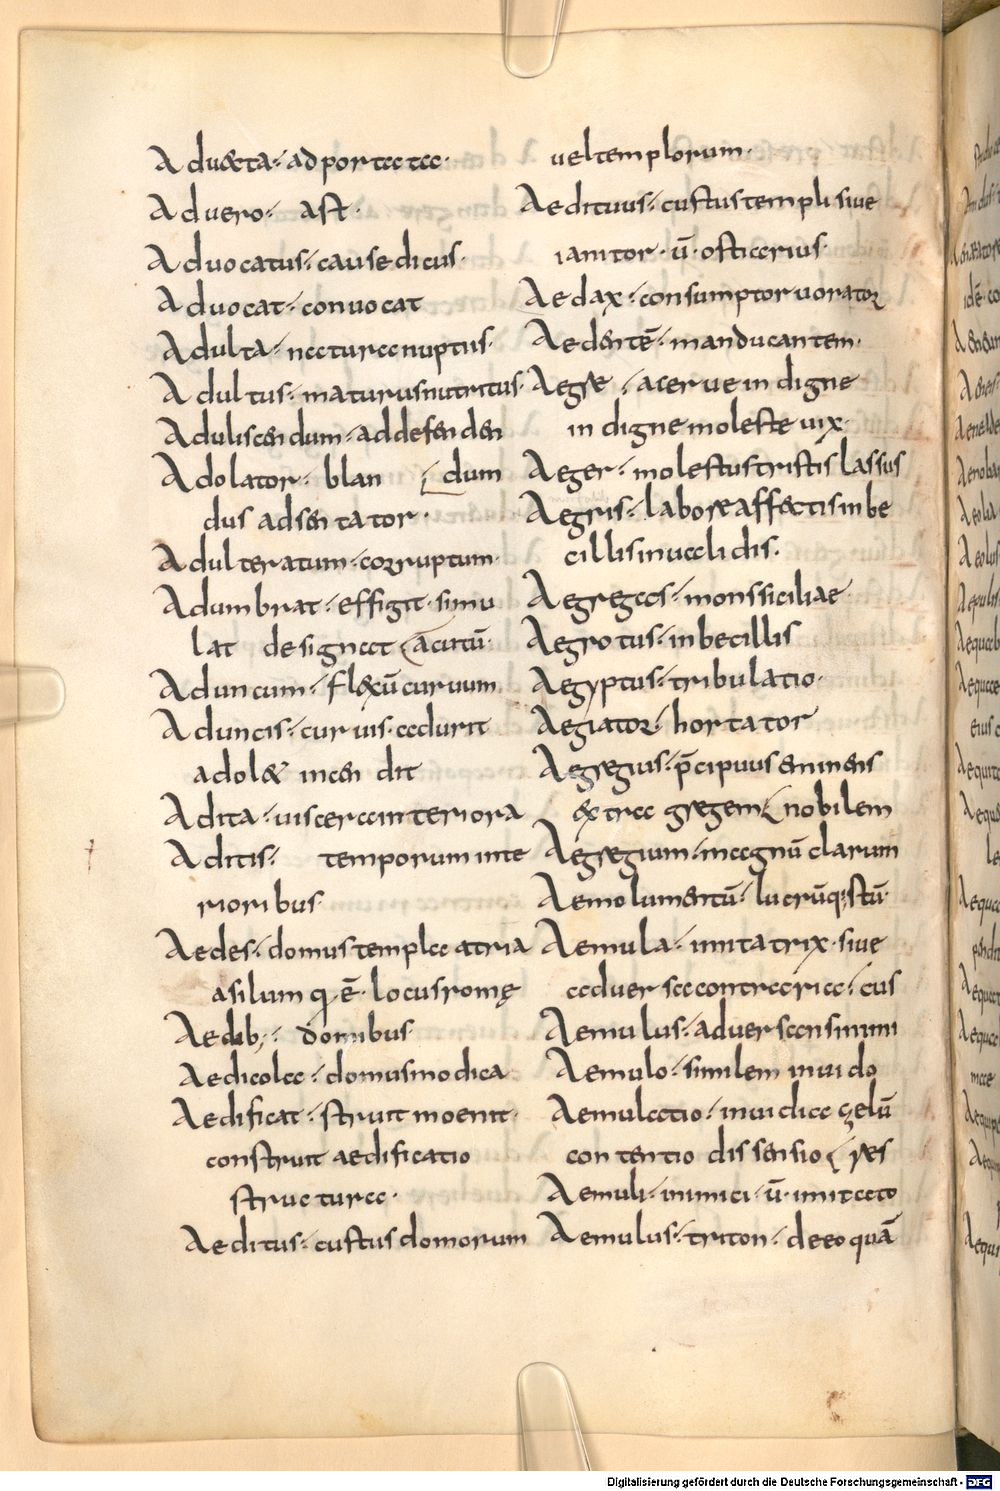 Aduecta: adportata.
Aduero: ast.
Aduocatus: causedicus.
Aduocat: conuocat
Adulta: naturanuptus.
Adultus: maturusnutritus.
Aduliscendum: addefenden
Adolator: blan dum
dus adsentator.
Adulteratum: corruptum.
Adumbrat: effigit. simu
lat designat acutū.
Aduncum: flexū curuum
Aduncis: curuis. adurit
adolet incendit
Adita: uiscera interiora
Aditis: temporum inte
rioribus.
Aedes: domus templa atria
asilum q ē. locus romę
Aedib;: domibus.
Aedicola: domus modica
Aedificat: struit moenit.
construit aedificatio
structura.
Aeditus: custus domorum
uel templorum.
Aedituus: custus templi siue
ianitor. ū. osticerius.
Aedax: consumptor uorator
Aedentē: manducantem.
Aegre: acerue indigne
indigne moleste uix.
Aeger: molestus tristis lassus
Aegris: labore affectis inbe
cillis inualidis.
Aegregas: mons siciliae.
Aegrotus: inbecillis
Aegyptus: tribulatio.
Aegiator: hortator
Aegregius: p̄cipuus eminens
extra gregem nobilem
Aegregium: magnū clarum
Aemolumentū: lucrū questū.
Aemula: imitatrix. siue
aduersa contraria: cus
Aemulus: aduersans inimi
Aemulo: similem inuido
Aemulatio: inuidia zelū
contentio dissensio res
Aemuli: inimici. ū. imitato
Aemulus: triton: deeo quā
Digitalisierung gefördert durch die Deutsche Forschungsgemeinschaft - DFG